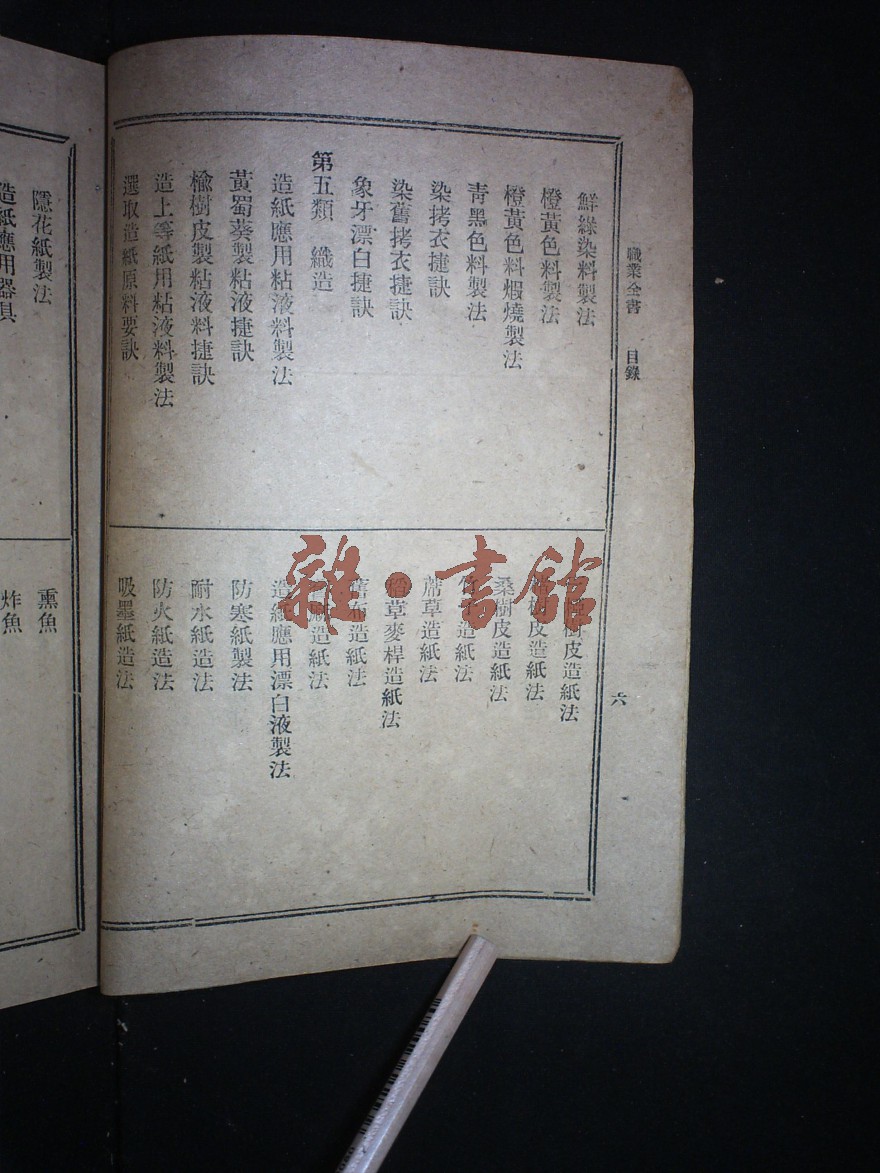 職業全書 目錄
六
鮮綠染料製法
橙黃色料製法
橙黃色料煆燒製法
靑黑色料製法
染拷衣捷訣
染舊拷衣捷訣
象牙漂白捷訣
第五類 織造
造紙應用粘液料製法
黃蜀葵製粘液捷訣
楡樹皮製粘液料捷訣
造上等紙用粘液料製法
選取造紙原料要訣
樹皮造紙法
樹皮造紙法
桑樹皮造紙法
造紙法
蓆草造紙法
稻草麥桿造紙法
舊布造紙法
造紙法
造紙應用漂白液製法
防寒紙製法
耐水紙造法
防火紙造法
吸墨紙造法
隱花紙製法
造紙應用器具
熏魚
炸魚
雜·書館